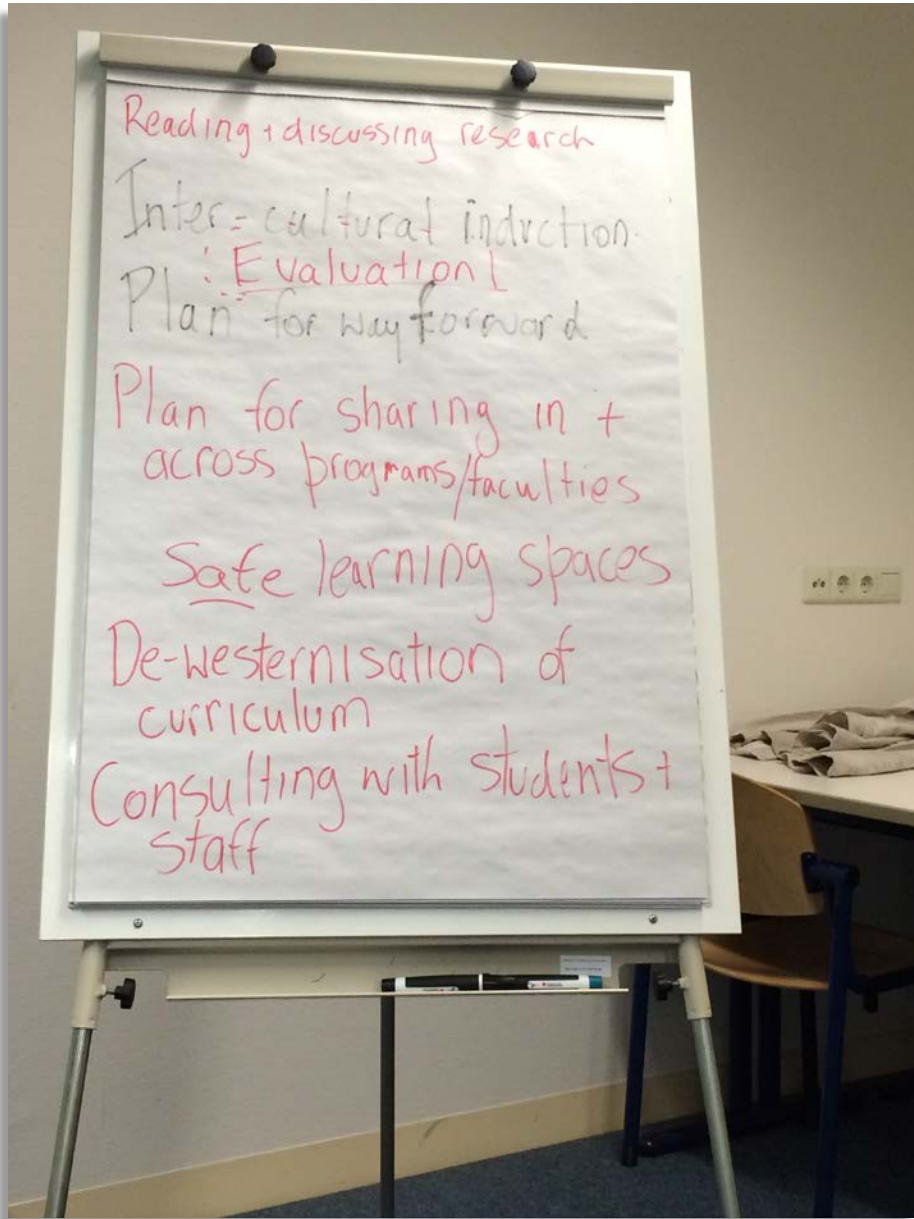 Reading + discussing research
Inter-cultural induction.
! Evaluation!
Plan for way forward
Plan for sharing in +
across programs/faculties
Safe learning spaces
De-westernisation of
curriculum
Consulting with students +
staff